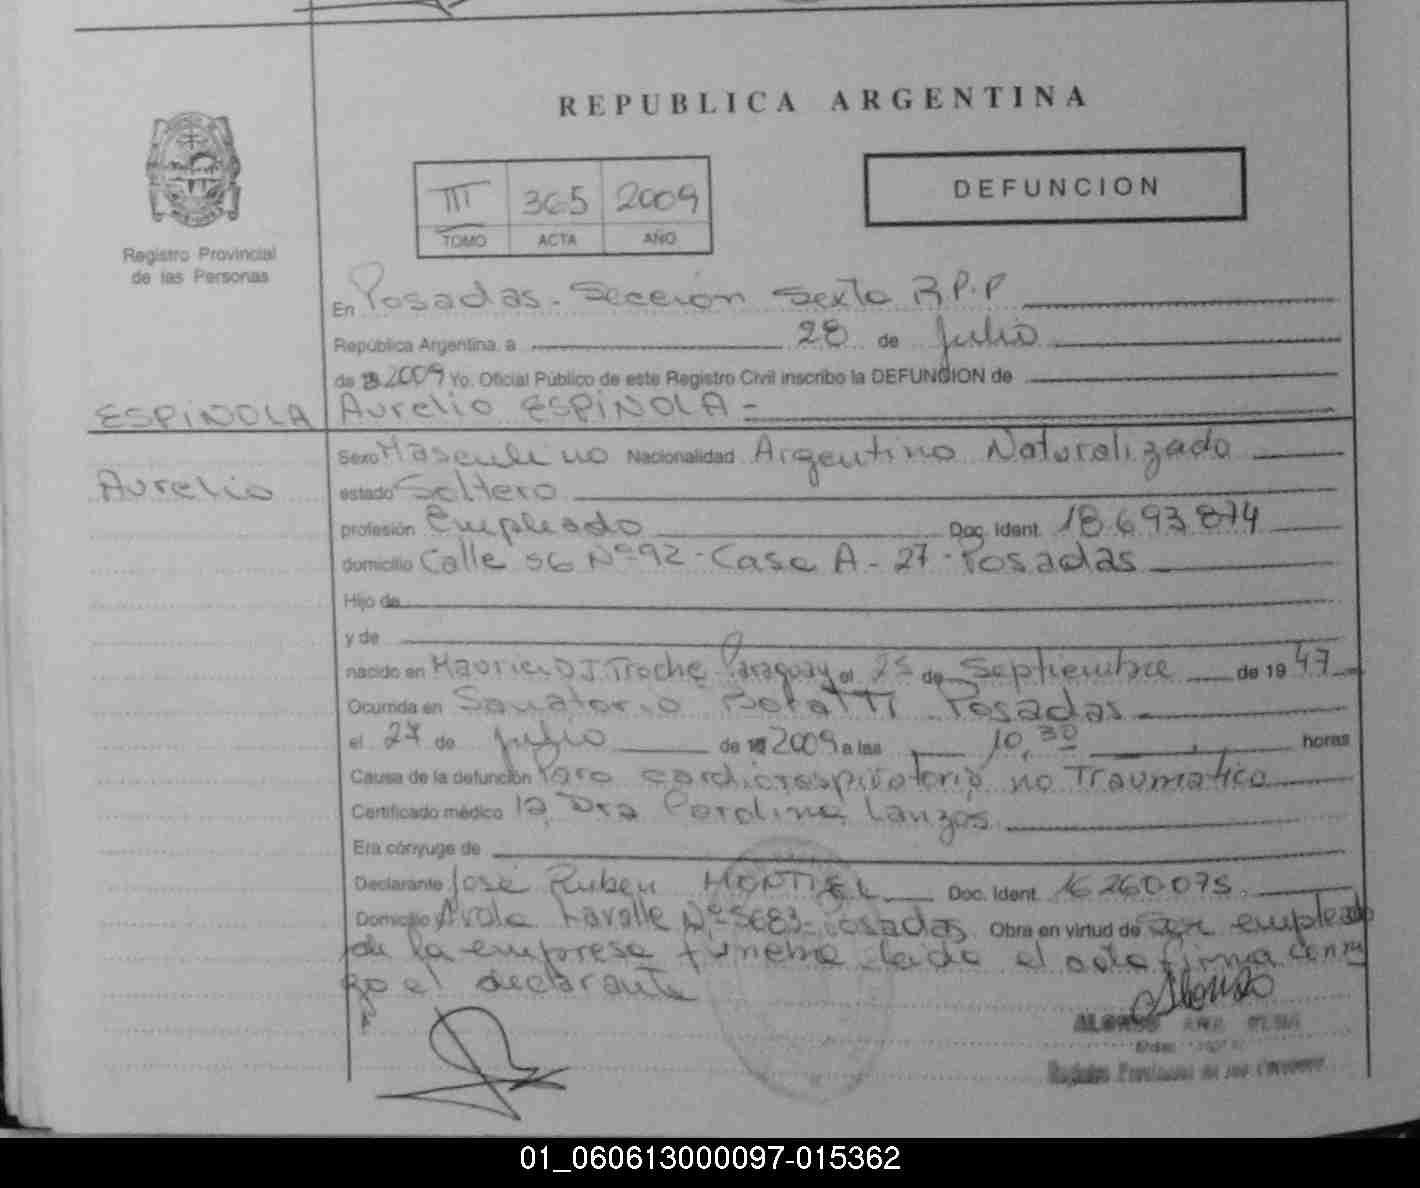 REPUBLICA ARGENTINA
Registro Provincial
de las Personas
III 365 2009
TOMO ACTA AÑO
DEFUNCION
En Posadas - Sección Sexta R.P.P
República Argentina, a 28 de Julio
de 2009 Yo. Oficial Público de este Registro Civil inscribo la DEFUNCION de
ESPINOLA Aurelio ESPINOLA =
Sexo Masculino Nacionalidad Argentino Naturalizado
Aurelio
estado Soltero
profesión Empleado Doc. Ident. 18.693.874
domicilio Calle 56 Nº 92 - Casa A - 27 - Posadas
Hijo de
y de
nacido en Mauricio J. Troche Paraguay el 25 de Septiembre de 1947
Ocurrida en Sanatorio Boratti Posadas
el 27 de Julio de 2009 a las 10,30 horas
Causa de la defunción Paro cardiorespiratorio no Traumatico
Certificado médico la Dra Carolina Lanzós
Era cónyuge de
Declarante José Ruben MONTIEL Doc. Ident. 16260075.
Domicilio Avda Lavalle Nº 5683 - Posadas Obra en virtud de ser empleado
de la empresa funebre leida el acta firma conmi
go el declarante
Alonso
ALONSO
Registro Provincial de las Personas
01_060613000097-015362